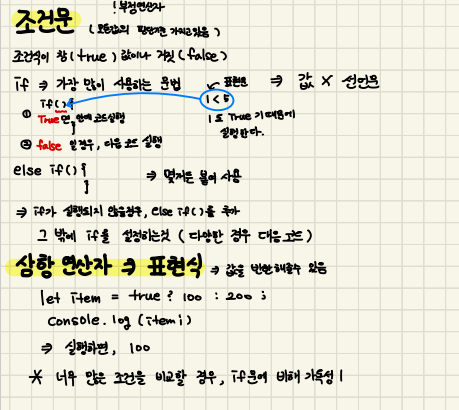 ! 부정연산자
조건문 (모든값의 판단만 가지고있음)
조건식이 참(true) 값이나 거짓(false)
if ⇒ 가장 많이 사용하는 문법 표현문 ⇒ 값 X 선언문
if(){ 1 < 5
① True면, 안에 코드실행 1은 True 기때문에
} 실행한다.
② false 일경우, 다음 코드 실행
else if(){ ⇒ 몇개든 붙여 사용
}
⇒ if가 실행되지 않을경우, else if()를 추가
그 밖에 if를 설정하는것 (다양한 경우 대응코드)
삼항 연산자 ⇒ 표현식 ⇒ 값을 반환해줄수 있음
let item = true ? 100 : 200 ;
console.log (item;)
⇒ 실행하면, 100
* 너무 많은 조건을 비교할 경우, if문에 비해 가독성 ↓